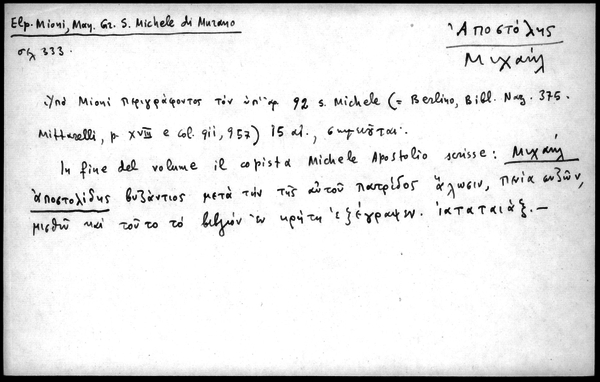 Elp. Mioni, Man. Gr. S. Michele di Murano
σελ 333.
Ἀποστόλης
Μιχαήλ
Ὑπὸ Mioni περιγράφοντος τὸν ὑπ' ἀρ 92 S. Michele (= Berlino, Bibl. Naz. 375.
Mittarelli, p. XVIII e col. 911, 957) 15 αἰ., σημειοῦται.
In fine del volume il copista Michele Apostolio scrisse: Μιχαήλ
ἀποστολίδης βυζάντιος μετὰ τὴν τῆς αὐτοῦ πατρίδος ἅλωσιν, πενίᾳ συζῶν,
μισθῷ καὶ τοῦτο τὸ βιβλίον ἐν κρήτῃ ἐξέγραψεν. ἰαταταιάξ.—